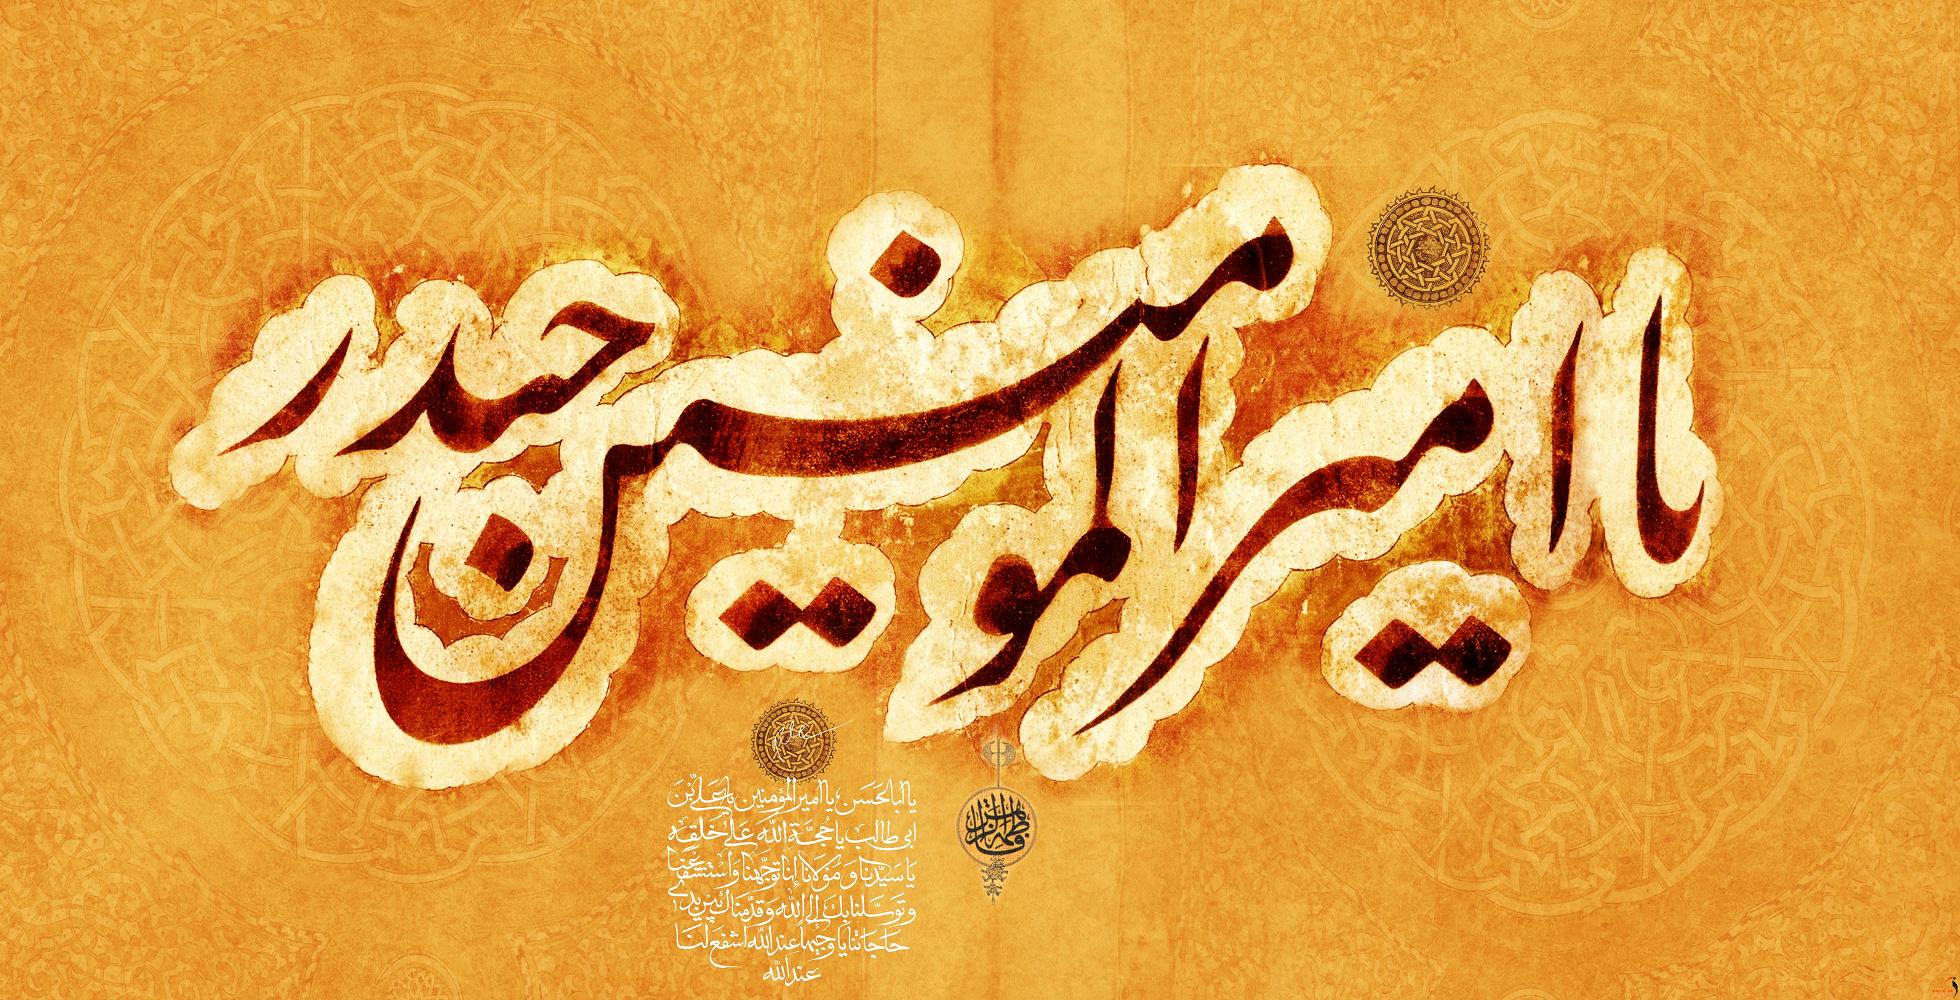 یا امیرالمومنین حیدر
یا اباالحَسَن یا امیرالمؤمنین یا عَلیَّ بنَ
ابی طالب یا حُجَّةَ الله عَلی خَلقِه
یا سَیِّدَنا وَ مَوْلانا اِنّا تَوَجَّهنا وَاستَشفَعنا
وَ تَوَسَّلنا بِکَ اِلَی الله وَ قَدَّمناکَ بَینَ یَدَی
حاجاتنا یا وَجیهاً عندالله اشفَع لَنا
عندالله
فاطمة الزهراء